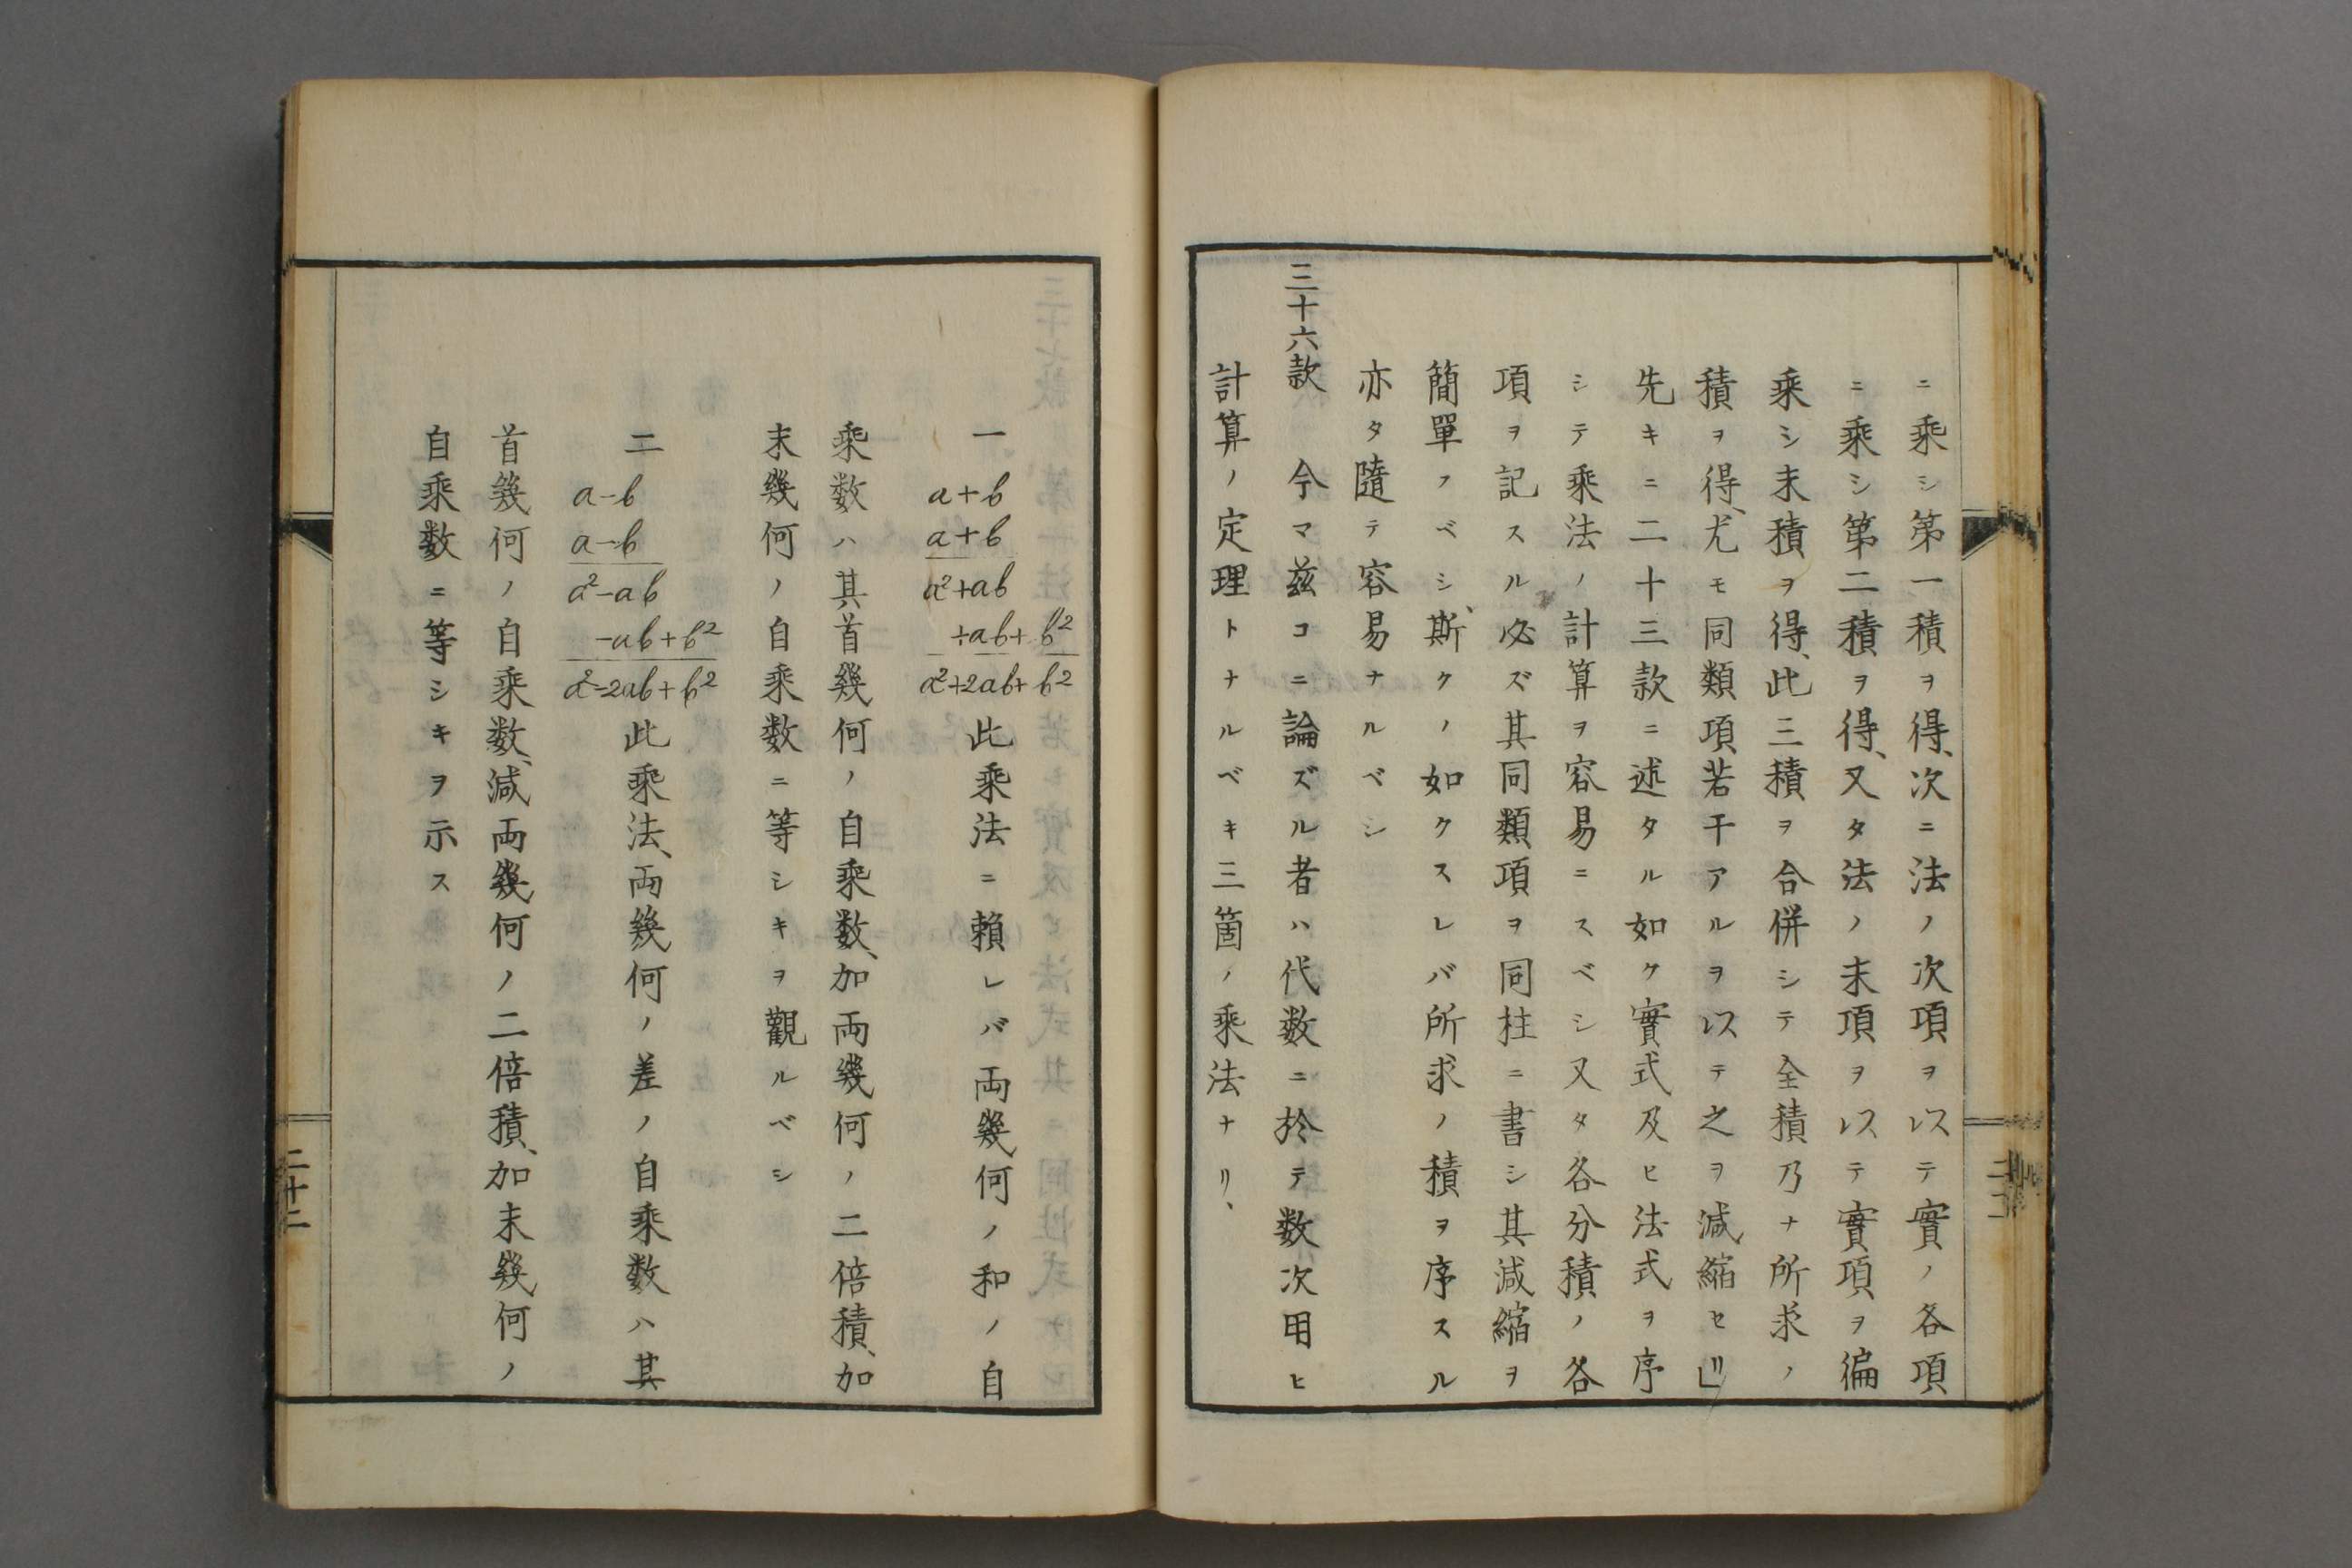 ニ乘シ第一積ヲ得、次ニ法ノ次項ヲ以テ實ノ各項
ニ乘シ第二積ヲ得、又タ法ノ末項ヲ以テ實項ヲ徧
乘シ末積ヲ得、此三積ヲ合併シテ全積乃ナ所求ノ
積ヲ得、尤モ同類項若干アルヲ以テ之ヲ減縮セリ」
先キニ二十三款ニ述タル如ク實式及ヒ法式ヲ序
シテ乘法ノ計算ヲ容易ニスベシ又タ各分積ノ各
項ヲ記スル必ズ其同類項ヲ同柱ニ書シ其減縮ヲ
簡單フベシ、斯クノ如クスレバ所求ノ積ヲ序スル
亦タ隨テ容易ナルベシ
三十六款 今マ茲コニ論ズル者ハ代数ニ於テ数次用ヒ
計算ノ定理トナルベキ三箇ノ乘法ナリ、
一
a+b
a+b
a²+ab
+ab+b²
a²+2ab+b²
此乘法ニ賴レバ両幾何ノ和ノ自
乘数ハ其首幾何ノ自乘数、加両幾何ノ二倍積、加
末幾何ノ自乘数ニ等シキヲ觀ルベシ
二
a-b
a-b
a²-ab
-ab+b²
a²-2ab+b²
此乘法、両幾何ノ差ノ自乘数ハ其
首幾何ノ自乘数、減両幾何ノ二倍積、加末幾何ノ
自乘数ニ等シキヲ示ス
二十二